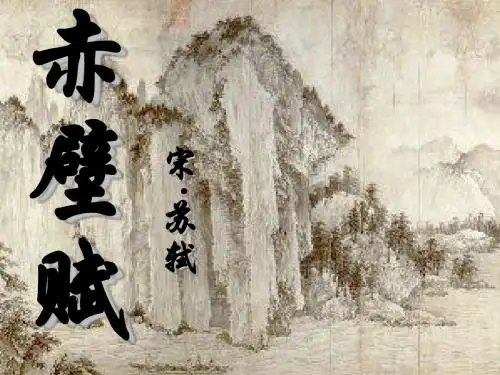 赤壁赋
宋·苏轼